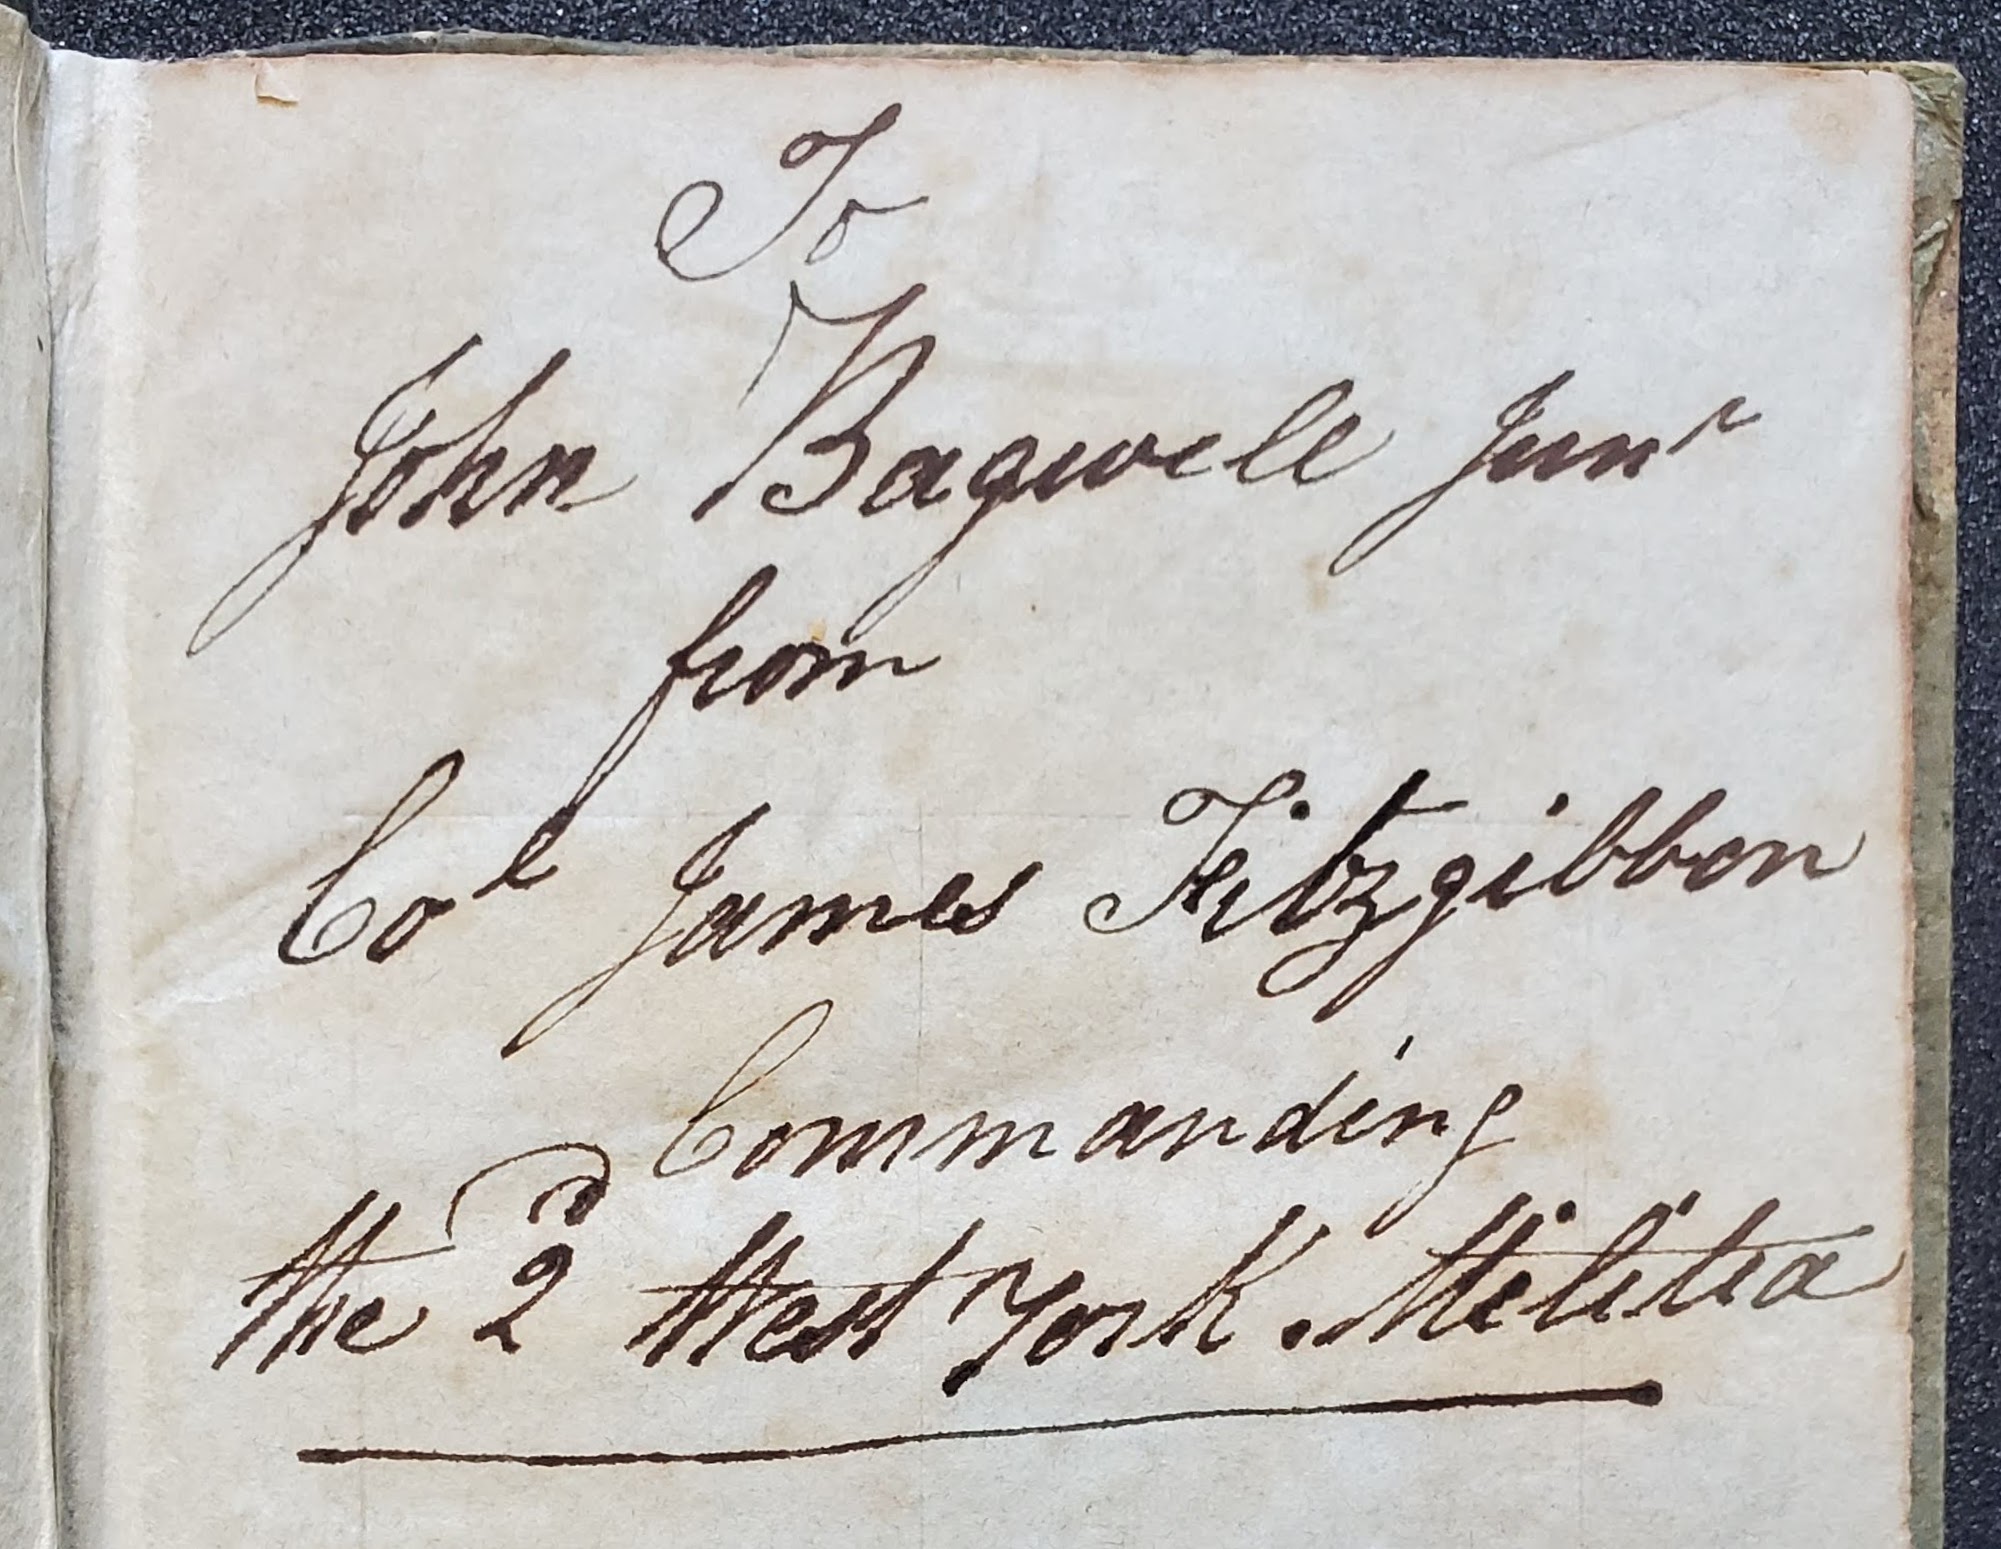 To
John Bagwell Junr
from
Col James Fitzgibbon
Commanding
the 2d West York Militia